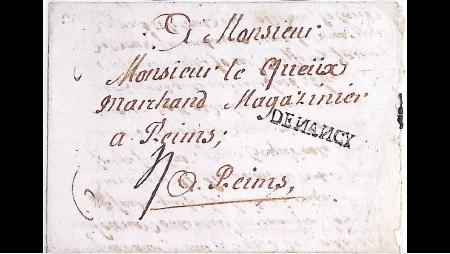 A Monsieur
Monsieur le Queüx
Marchand Magazinier
a Reims;
DE NANCY
a Reims,